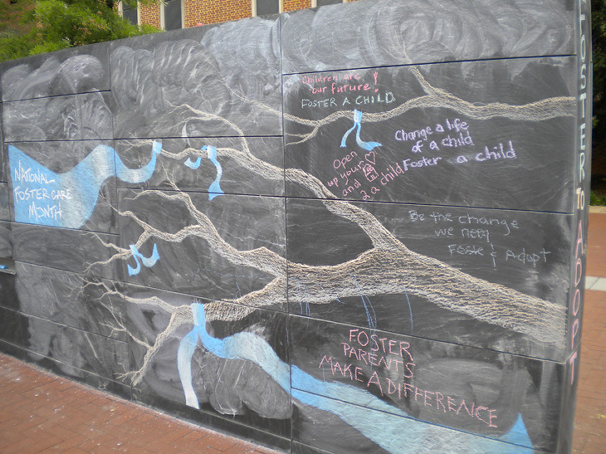 Children are
our future!
FOSTER A CHILD
NATIONAL
FOSTER CARE
MONTH
Open
up your ♡
and
2 a child
Change a life
of a child
Foster a child
Be the change
we need
Foster & Adopt
FOSTER
PARENTS
MAKE A DIFFERENCE
FOSTER TO ADOPT